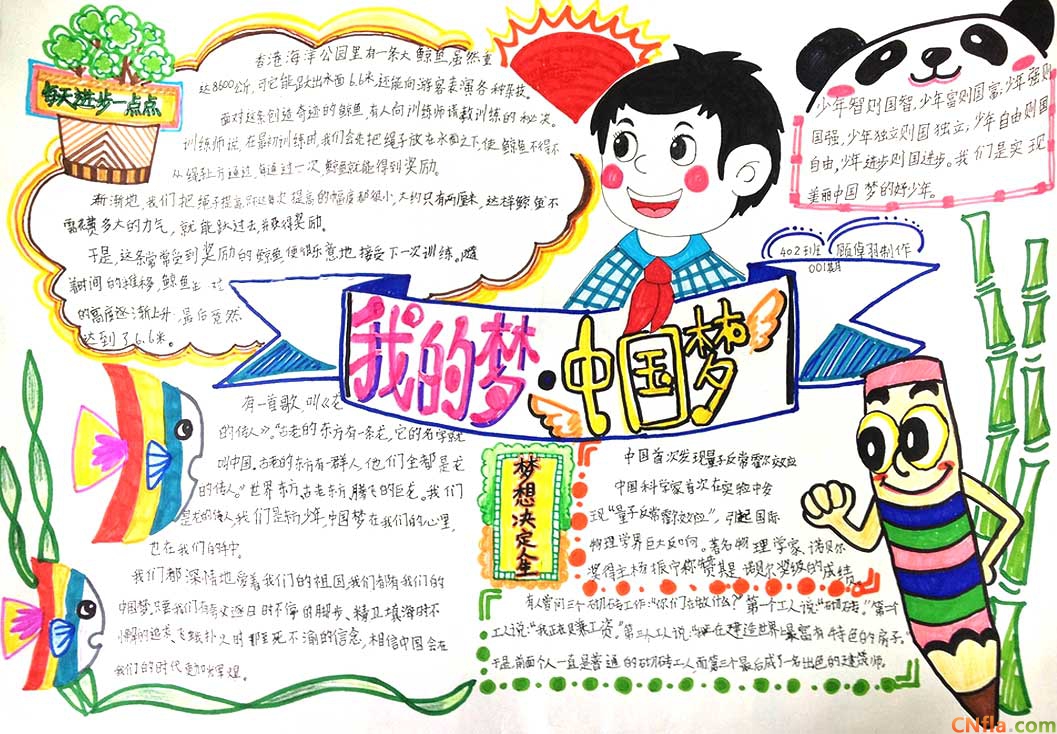 每天进步一点点
香港海洋公园里有一条大鲸鱼,虽然重
达8600公斤,可它能跃出水面6.6米,还能向游客表演各种杂技。
面对这条创造奇迹的鲸鱼,有人向训练师请教训练的秘决。
训练师说,在最初训练时,我们会先把绳子放在水面之下,使鲸鱼不得不
从绳子上方通过,每通过一次,鲸鱼就能得到奖励。
渐渐地,我们把绳子提高,只不过每次提高的幅度都很小,大约只有两厘米,这样鲸鱼不
需花费多大的力气,就能跃过去并获得奖励。
于是,这条常常受到奖励的鲸鱼便很乐意地接受下一次训练。随
着时间的推移,鲸鱼
的高度逐渐上升,最后竟然
达到了6.6米。
少年智则国智,少年富则国富,少年强则
国强,少年独立则国独立,少年自由则国
自由,少年进步则国进步。我们是实现
美丽中国梦的好少年。
402班
制作
001期
我的梦·中国梦
有一首歌,叫《龙
的传人》。“古老的东方有一条龙,它的名字就
叫中国,古老的东方有一群人,他们全都是龙
的传人。”世界东方,古老东方,腾飞的巨龙。我们
是龙的传人,我们是新少年,中国梦在我们的心里,
也在我们的手中。
我们都深情地爱着我们的祖国,我们都有我们的
中国梦,只要我们有夸父逐日时不停的脚步、精卫填海时不
懈的追求、飞蛾扑火时那至死不渝的信念,相信中国会在
我们的时代更加辉煌。
梦想决定人生
中国首次发现量子反常霍尔效应
中国科学家首次在实验中发
现“量子反常霍尔效应”,引起国际
物理学界巨大反响。著名物理学家、诺贝尔
奖得主杨振宁称赞其是诺贝尔奖级的成绩。
有人曾问三个砌砖工作:“你们在做什么?”第一个工人说:“砌砖。”第二个
工人说:“我正在赚工资。”第三个工人说:“我正在建造世界上最富有特色的房子。”
于是前面个人一直是普通的砌砖工人,而第三个最后成了一名出色的建筑师。
CNfla.com